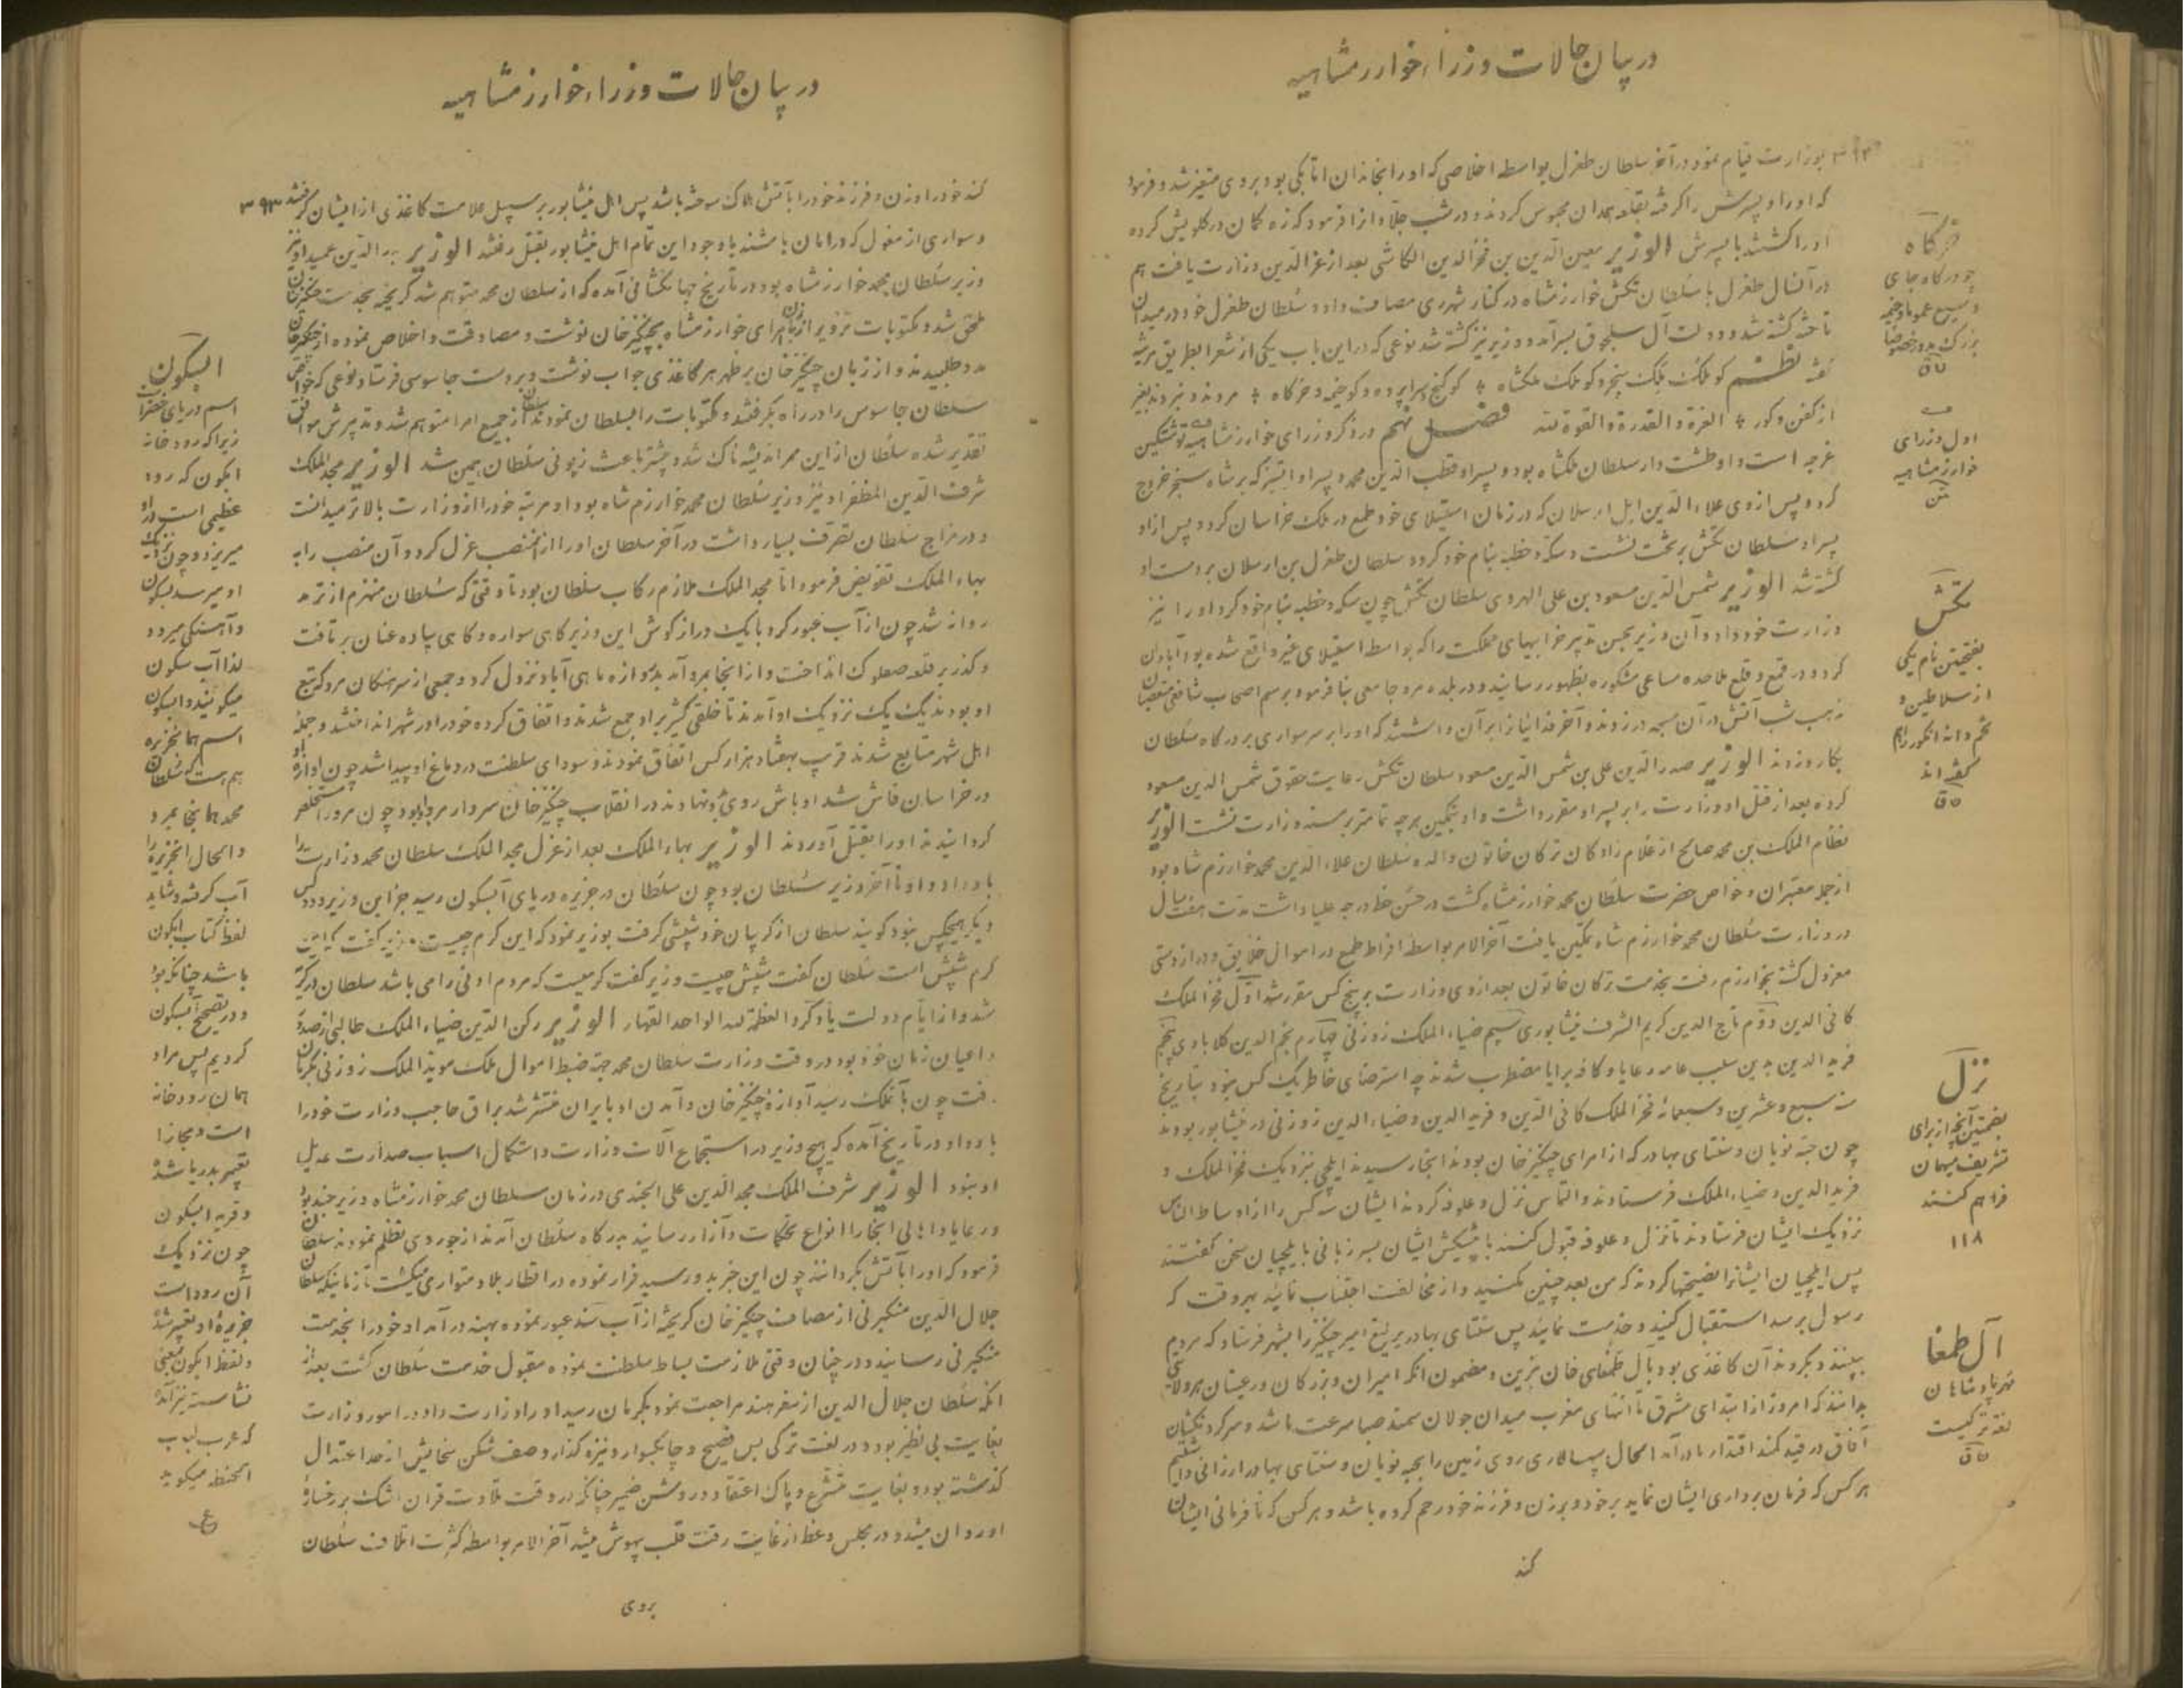 در بیان حالات وزراء خوارزمشاهیه
بوزارت قیام نمود در آخر سلطان طغرل بواسطه اخلاصی که او را بخاندان اتابکی بود بروی متغیر شد و فرمود
که او را و پسرش را گرفته بقلعه همدان محبوس کردند و در شب جلاد از افرمود که زه کمان در گلویش کرده
او را کشتند با پسرش الوزیر معین الدین بن فخر الدین الکاشی بعد از عز الدین وزارت یافت هم
در آنسال طغرل با سلطان تکش خوارزمشاه در کنار شهر ری مصاف داد و سلطان طغرل خود در میدان
تاخته کشته شد و دولت آل سلجوق بسر آمد و وزیر نیز کشته شد نوعی که در این باب یکی از شعرا بطریق مرثیه
گفته نظم کو ملک ملک سنجر و کو ملک ملکشاه کو گنج و سراپرده و کو خیمه و خرگاه مردند و نبردند بغیر
از کفن و گور العزة والقدرة والقوة لله فصل نهم در ذکر وزرای خوارزمشاهیه نوشتکین
غرجه است و او طشت دار سلطان ملکشاه بود و پسر او قطب الدین محمد و پسر او اتسز که بر شاه سنجر خروج
کرد و پس از وی علاء الدین ایل ارسلان که در زمان استیلای خود طمع در ملک خراسان کرد و پس از او
پسر او سلطان تکش بر تخت نشست و سکه و خطبه بنام خود کرد و سلطان طغرل بن ارسلان بر دست او
کشته شد الوزیر شمس الدین مسعود بن علی الهروی سلطان تکش چون سکه و خطبه بنام خود کرد او را نیز
وزارت خود داد و آن وزیر بحسن تدبیر خرابیهای مملکت را که بواسطه استیلای غیر واقع شده بود آبادان
کرد و در قمع و قلع ملاحده مساعی مشکوره بظهور رسانید و در بلده مرو جامعی بنا فرمود برسم اصحاب شافعی متعصبان
مذهب شب آتش در آن مسجد در زدند و آخر فدائیانرا بر آن داشتند که او را بر سر سواری بر درگاه سلطان
بکارد زدند الوزیر صدر الدین علی بن شمس الدین مسعود سلطان تکش رعایت حقوق شمس الدین مسعود
کرده بعد از قتل او وزارت را بر پسر او مقرر داشت و او بتمکین هر چه تمامتر بر مسند وزارت نشست الوزیر
نظام الملک بن محمد صالح از غلام زادگان ترکان خاتون والده سلطان علاء الدین محمد خوارزم شاه بود
از جمله معتبران و خواص حضرت سلطان محمد خوارزمشاه گشت در حسن خط درجه علیا داشت مدت هفت سال
در وزارت سلطان محمد خوارزم شاه تمکین یافت آخر الامر بواسطه افراط طمع در اموال خلایق و دراز دستی
معزول گشته بخوارزم رفت بخدمت ترکان خاتون بعد از وی وزارت بر پنج کس مقرر شد اول فخر الملک
کافی الدین دوم تاج الدین کریم الشرف نیشابوری سیم ضیاء الملک زوزنی چهارم نجم الدین کلابادی پنجم
فرید الدین بدین سبب عامه رعایا و کافه برایا مضطرب شدند چه استرضای خاطر یک کس بنود بتاریخ
سنه سبع و عشرین و سبعمائه فخر الملک کافی الدین و فرید الدین و ضیاء الدین زوزنی در نیشابور بودند
چون جبه نویان و سنتای بهادر که از امرای چنگیز خان بودند آنجا رسیدند ایلچی بنزدیک فخر الملک و
فرید الدین و ضیاء الملک فرستادند و التماس نزل و علوفه کردند ایشان سه کس را از اوساط الناس
نزدیک ایشان فرستادند تا نزل و علوفه قبول کنند با پیشکش ایشان بسر زبانی با ایلچیان سخن گفتند
پس ایلچیان ایشانرا نصیحتها کردند که من بعد چنین مکنید و از مخالفت اجتناب نمائید هر وقت که
رسول برسد استقبال کنید و خدمت نمایند پس سنتای بهادر یرلیغ امیر چنگیز را بشهر فرستاد که مردم
ببینند و بگروند آن کاغذی بود بآل طمغای خان مزین و مضمون آنکه امیران و بزرگان و رعیتان هر ولایتی
بدانند که امروز از ابتدای مشرق تا انتهای مغرب میدان جولان سمند صبا سرعت ما شد و سر گردنکشان
آفاق در قید کمند اقتدار ما در آمد الحال سپهسالاری روی زمین را بجبه نویان و سنتای بهادر ارزانی داشتیم
هر کس که فرمان برداری ایشان نماید بر خود و بر زن و فرزند خود رحم کرده باشد و هر کس که نافرمانی ایشان
کند
خرگاه
چو درگاه جای
وسیع عموما و خیمه
بزرگ مدور خصوصا
اول وزرای
خوارزمشاهیه
تکش
بفتحتین نام یکی
از سلاطین و
تخم و دانه انگور را هم
گفته اند
نزل
بضمتین آنچه از برای
تشریف میهمان
فراهم کنند
۱۱۸
آل طمغا
مهر پادشاهان
لغت ترکیست
در بیان حالات وزراء خوارزمشاهیه
۳۹۳
کند خود را و زن و فرزند خود را بآتش هلاک سوخته باشد پس اهل نیشابور بر سبیل علامت کاغذی از ایشان گرفتند
و سواری از مغول که در امان باشند با وجود این تمام اهل نیشابور بقتل رفتند الوزیر بدر الدین عمید او نیز
وزیر سلطان محمد خوارزمشاه بود و در تاریخ جهانگشائی آمده که از سلطان محمد متوهم شد گریخته بخدمت چنگیز خان
ملحق شد و مکتوبات تزویر از زبان امرای خوارزمشاه بچنگیز خان نوشت و مصادقت و اخلاص نموده از چنگیز خان
مدد طلبیدند و از زبان چنگیز خان بر ظهر هر کاغذی جواب نوشت و بدست جاسوسی فرستاد نوعی که خواص
سلطان جاسوس را در راه بگرفتند و مکتوبات را بسلطان نمودند سلطان از جمیع امرا متوهم شد و تدبیرش موافق
تقدیر شده سلطان از این ممر اندیشه ناک شد و بیشتر باعث زبونی سلطان همین شد الوزیر مجد الملک
شرف الدین المظفر او نیز وزیر سلطان محمد خوارزم شاه بود او مرتبه خود را از وزارت بالاتر میدانست
و در مزاج سلطان تصرف بسیار داشت در آخر سلطان او را از آنمنصب عزل کرد و آن منصب را به
بهاء الملک تفویض فرمود اما مجد الملک ملازم رکاب سلطان بود تا وقتی که سلطان منهزم از ترمد
روانه شد چون از آب عبور کرد با یک دراز گوش این وزیر گاهی سواره و گاهی پیاده عنان بر تافت
و گذر بر قلعه صعلوک انداخت و از آنجا بمرو آمد بدروازه ماهی آباد نزول کرد و جمعی از سرهنگان مرو که تبع
او بودند یک یک نزدیک او آمدند تا خلقی کثیر بر او جمع شدند و اتفاق کرده خود را در شهر انداختند و جمله
اهل شهر متابع شدند قریب بهفتاد هزار کس اتفاق نمودند و سودای سلطنت در دماغ او پیدا شد چون آوازه او
در خراسان فاش شد اوباش روی بدو نهادند در انقلاب چنگیز خان سردار مرو او بود چون مرو را مستخلص
گردانیدند او را بقتل آوردند الوزیر بهاء الملک بعد از عزل مجد الملک سلطان محمد وزارت را
باو داد و او تا آخر وزیر سلطان بود چون سلطان در جزیره دریای آبسکون رسید جز این وزیر و دو کس
دیگر هیچکس نبود گویند سلطان از گریبان خود شپشی گرفت بوزیر نمود که این کرم چیست وزیر گفت که این
کرم شپش است سلطان گفت شپش چیست وزیر گفت کرمیست که مردم ادنی را می باشد سلطان در گریه
شد و از ایام دولت یاد کرد العظمة لله الواحد القهار الوزیر رکن الدین ضیاء الملک طالبی از صدور
و اعیان زمان خود بود در وقت وزارت سلطان محمد جهة ضبط اموال ملک موید الملک زوزنی بکرمان
رفت چون بآنملک رسید آوازه چنگیز خان و آمدن او بایران منتشر شد براق حاجب وزارت خود را
باو داد و در تاریخ آمده که هیچ وزیر در استجماع آلات وزارت و استکمال اسباب صدارت عدیل
او نبود الوزیر شرف الملک مجد الدین علی الجندی در زمان سلطان محمد خوارزمشاه وزیر جند بود
و رعایا و اهالی آنجا را انواع تحکمات و آزار رسانید بدرگاه سلطان آمدند از جور وی تظلم نمودند سلطان
فرمود که او را بآتش بگردانند چون این خبر بدو رسید فرار نموده در اقطار بلاد متواری میگشت تا زمانیکه سلطان
جلال الدین منکبرنی از مصاف چنگیز خان گریخته از آب سند عبور نموده بهند در آمد او خود را بخدمت
منکبرنی رسانید و در چنان وقتی ملازمت بساط سلطنت نموده مقبول خدمت سلطان گشت بعد از
آنکه سلطان جلال الدین از سفر هند مراجعت نمود بکرمان رسید او را وزارت داد و در امور وزارت
بغایت بی نظیر بود و در لغت ترکی بس فصیح و چابکسوار و نیزه گذار و صف شکن سخایش از حد اعتدال
گذشته بود و بغایت متشرع و پاک اعتقاد و روشن ضمیر چنانکه در وقت تلاوت قرآن اشک بر رخساره
او روان میشد و در مجلس وعظ از غایت رقت قلب بیهوش میشد آخر الامر بواسطه کثرت اتلاف سلطان
بروی
ابسکون
اسم دریای خضرا
زیرا که رودخانه
ابکون که رود
عظیمی است در او
میریزد و چون نزدیک
او میرسد بسکون
و آهستگی میرود
لذا آب سکون
میگویند و ابسکون
اسم همانجزیره
هم هست که سلطان
محمد همانجا بمرد
و الحال آنجزیره را
آب گرفته و شاید
لفظ کتاب ابکون
باشد چنانکه بود
و در تصحیح آبسکون
کردیم پس مراد
همان رودخانه
است و مجازا
تعبیر بدریا شده
و قریه ابسکون
چون نزدیک
آن رود است
جزیره او تعبیر شد
و لفظ ابکون بمعنی
نشاسته نیز آمده
که عرب لباب
الحنطه میگوید